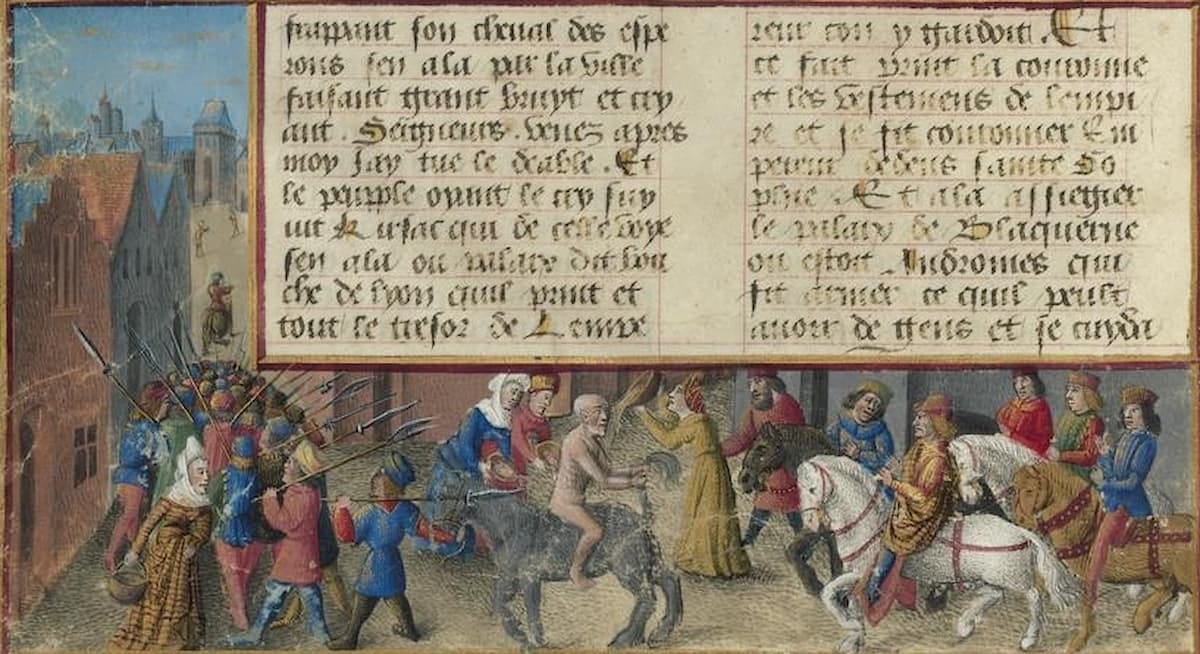 frappant son cheval des espe
rons sen ala par la ville
faisant grant bruyt et cry
ant . Seigneurs . venez apres
moy Jay tue le deable . Et
le peuple oyant le cry suy
uit Kirsac qui de celle voye
sen ala ou palaix dit bou
che de lyon quil print et
tout le tresor de Lempe
reur con y gardoit . Et
ce fait print la couronne
et les vestemens de lempi
re et se fit couronner Em
pereur dedens sainte So
phie . Et ala assieger
le palaix de Blaquerne
ou estoit . Andronies qui
fit armer ce quil peult
auoir de gens et se cuyda